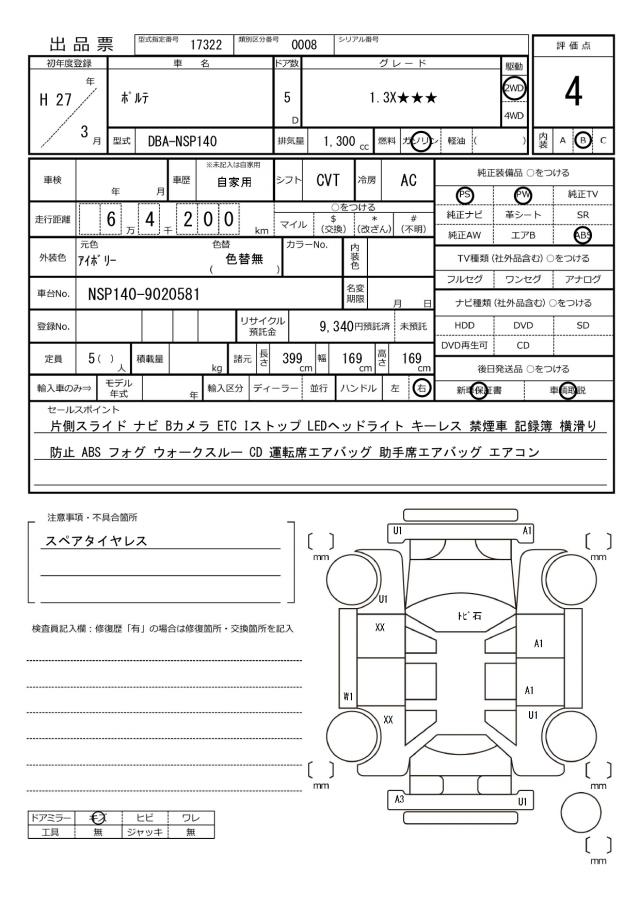 出品票
型式指定番号 17322 類別区分番号 0008 シリアル番号
評価点
初年度登録 車名 ドア数 グレード 駆動
H 27 年 ポルテ 5 D 1.3X★★★ 2WD 4
4WD
3 月 型式 DBA-NSP140 排気量 1,300 cc 燃料 ガソリン 軽油 ( ) 内装 A B C
車検 年 月 車歴 ※未記入は自家用 自家用 シフト CVT 冷房 AC
純正装備品 ○をつける
PS PW 純正TV
純正ナビ 革シート SR
純正AW エアB ABS
走行距離 6 万 4 千 2 0 0 km
○をつける
マイル $(交換) *(改ざん) #(不明)
外装色 元色 アイボリー 色替 色替無 ( ) カラーNo. 内装色
TV種類(社外品含む)○をつける
フルセグ ワンセグ アナログ
車台No. NSP140-9020581 名変期限 月 日
ナビ種類(社外品含む)○をつける
HDD DVD SD
DVD再生可 CD
登録No. リサイクル預託金 9,340円預託済 未預託
定員 5( )人 積載量 kg 諸元 長さ 399cm 幅 169cm 高さ 169cm
後日発送品 ○をつける
新車保証書 車輌取説
輸入車のみ⇒ モデル年式 年 輸入区分 ディーラー 並行 ハンドル 左 右
セールスポイント
片側スライド ナビ Bカメラ ETC Iストップ LEDヘッドライト キーレス 禁煙車 記録簿 横滑り
防止 ABS フォグ ウォークスルー CD 運転席エアバッグ 助手席エアバッグ エアコン
注意事項・不具合箇所
スペアタイヤレス
検査員記入欄：修復歴「有」の場合は修復箇所・交換箇所を記入
U1 A1
[ ] mm [ ] mm
U1
トビ石
XX
A1
W1
A1
XX
U1
[ ] mm [ ] mm
A3 U1
[ ] mm
ドアミラー キズ ヒビ ワレ
工具 無 ジャッキ 無